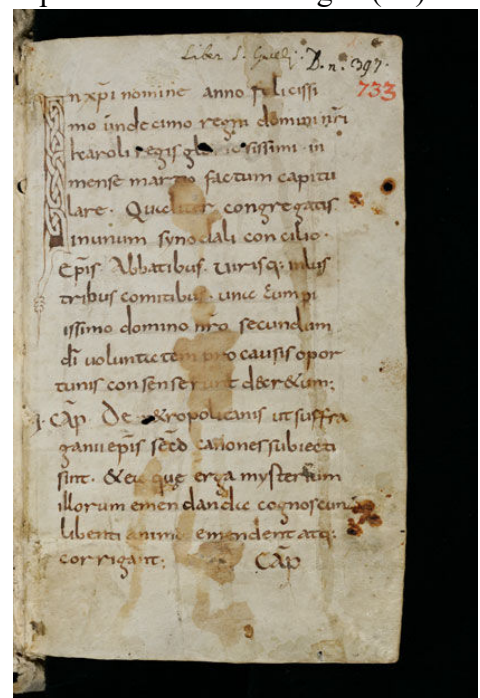 Liber S. Galli. D. n. 397.
733
In xp̄i nomine anno felicissi
mo undecimo regni domini nr̄i
karoli regis gloriosissimi in
mense martio factum capitu
lare. Qualiter congregatis
in unum synodali concilio.
Ep̄is. Abbatibus. uirisq; inlus
tribus comitibus. una cum pi
issimo domino nr̄o secundum
dī uoluntatem pro causis opor
tunis consenserunt decretum;
I. Cap̄ De metropolitanis ut suffra
ganii ep̄is secd̄ canones subiecti
sint. & ea que erga mysterium
illorum emendanda cognoscunt
libenti animo emendent atq;
corrigant; Cap̄